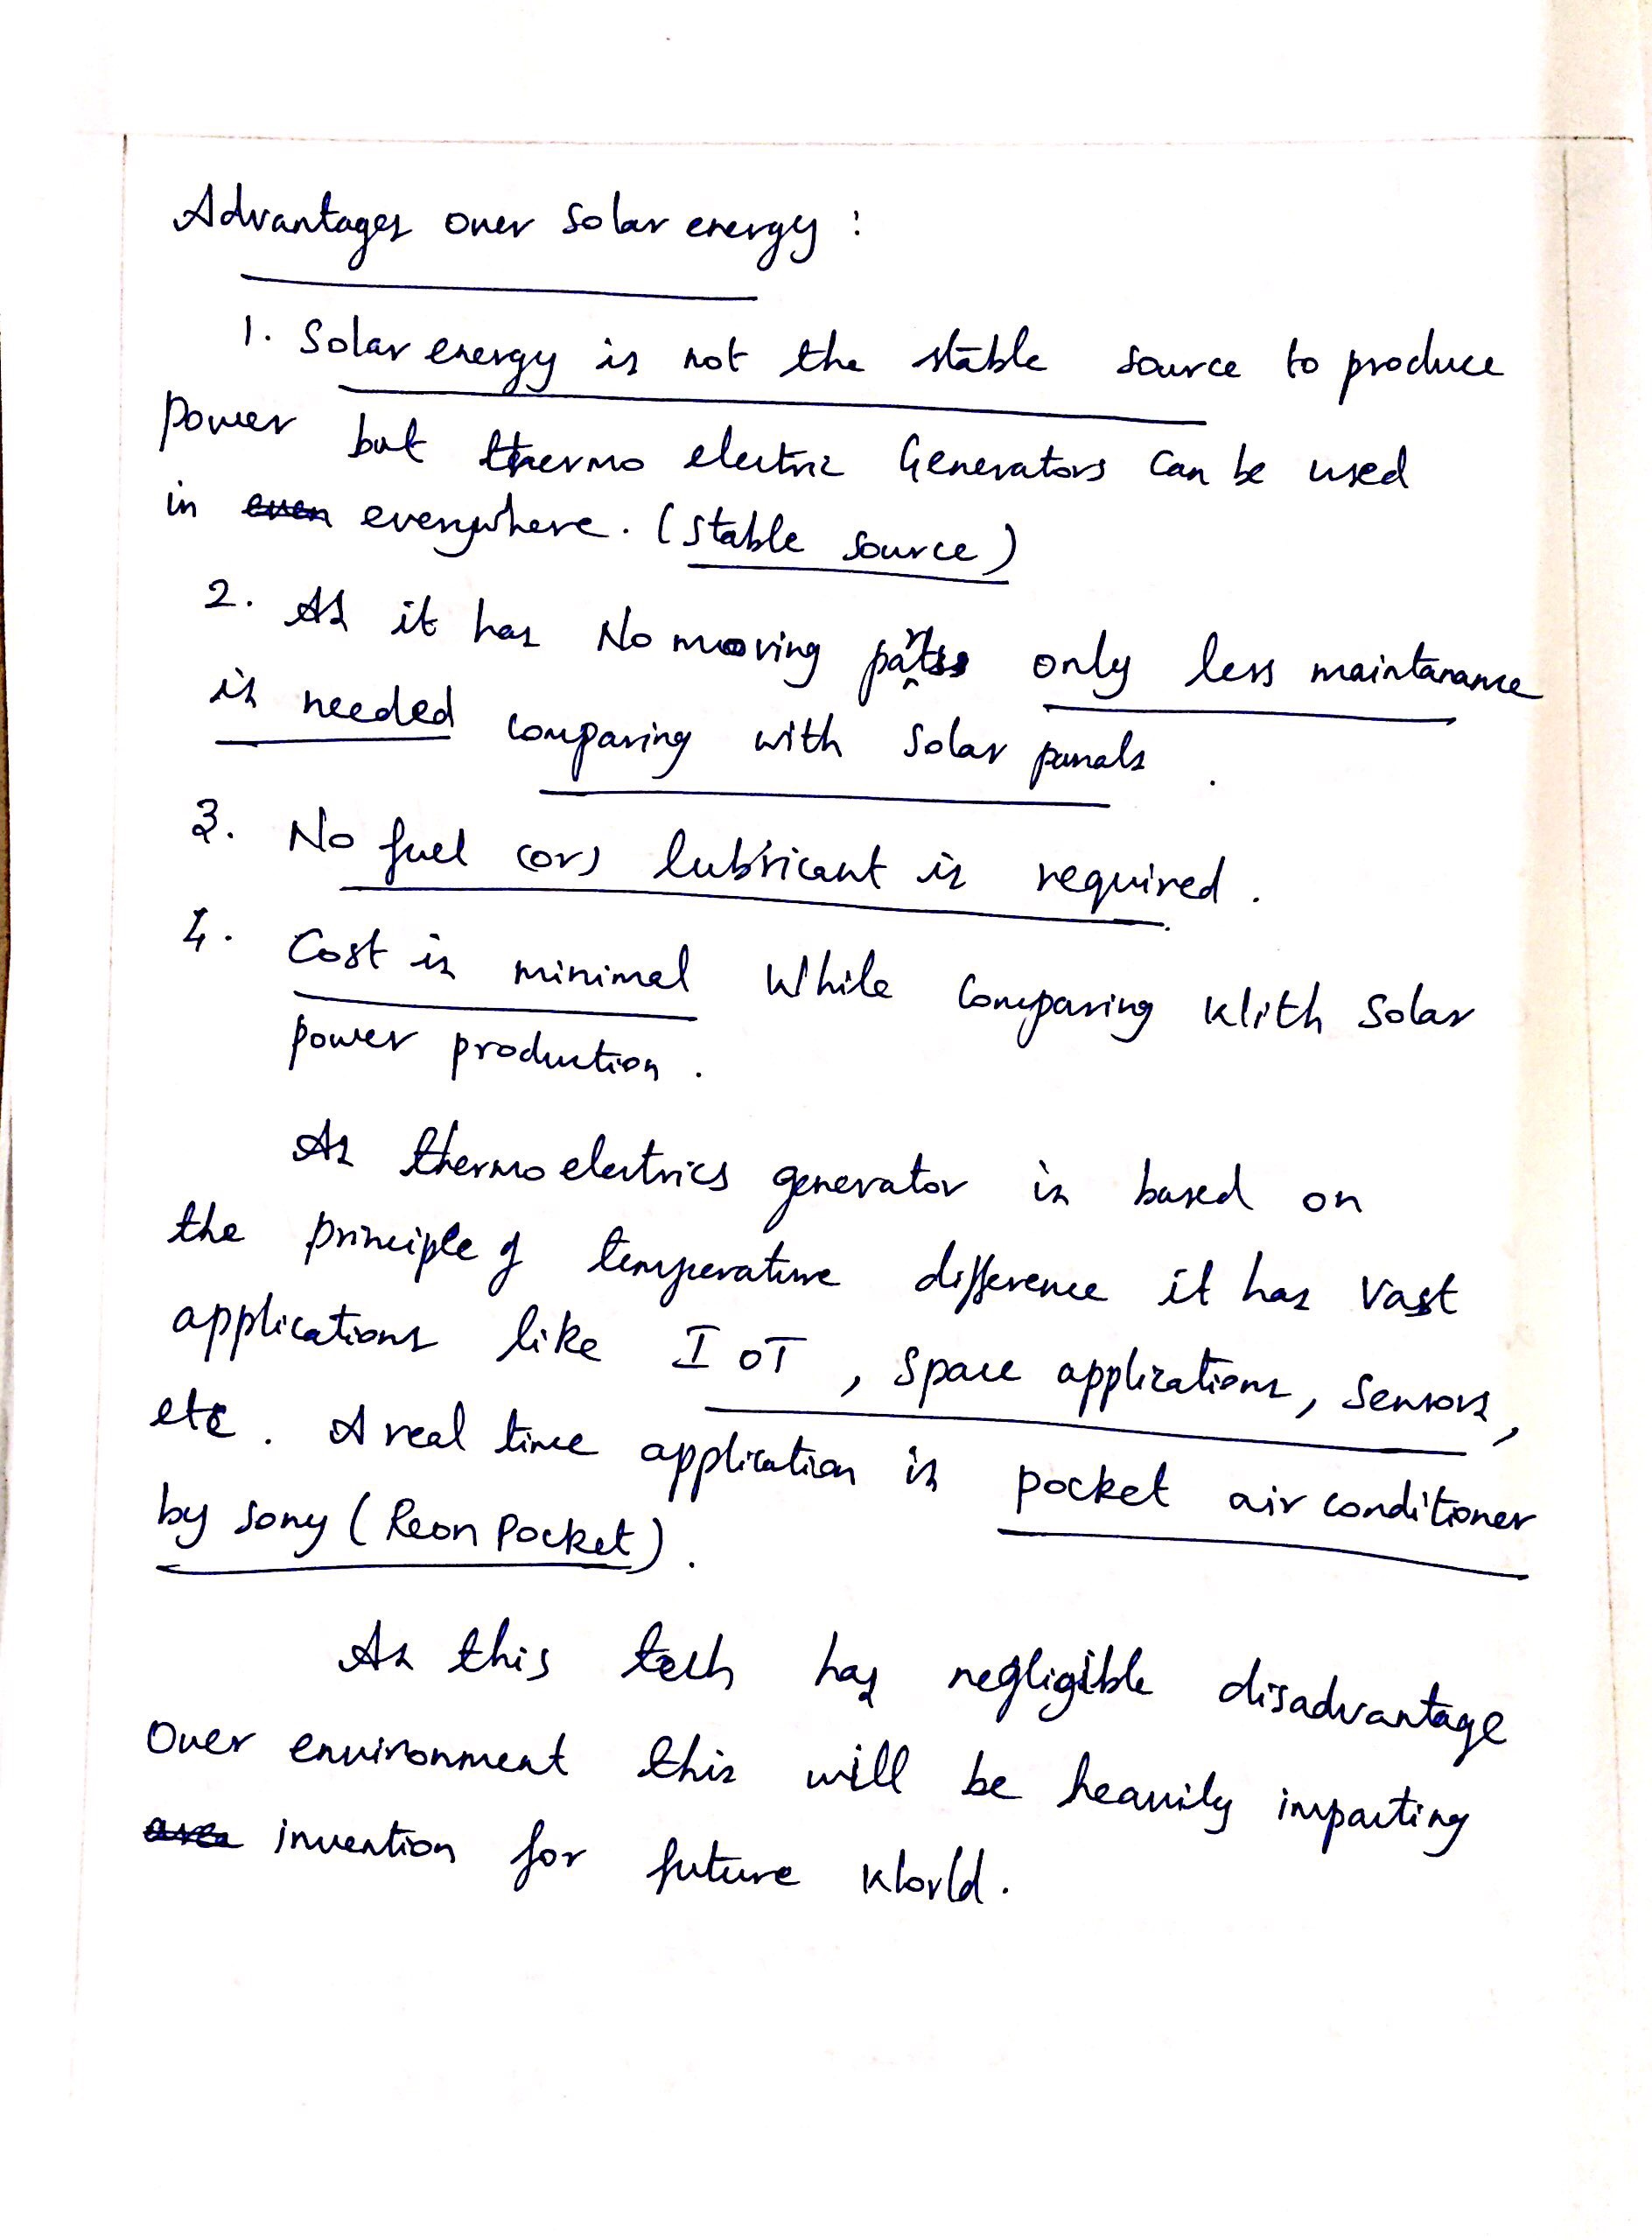 Advantages over solar energy :
1. Solar energy is not the stable source to produce
power but thermo electric Generators can be used
in even everywhere. (stable source)
2. As it has No moving parts only less maintanance
is needed comparing with solar panals.
3. No fuel (or) lubricant is required.
4. Cost is minimal While comparing With Solar
power production.
As thermo electrics generator is based on
the principle of temperature difference it has Vast
applications like IOT, space applications, sensors,
etc. A real time application is pocket air conditioner
by sony (Reon Pocket).
As this tech has negligible disadvantage
Over environment this will be heavily impacting
area invention for future World.